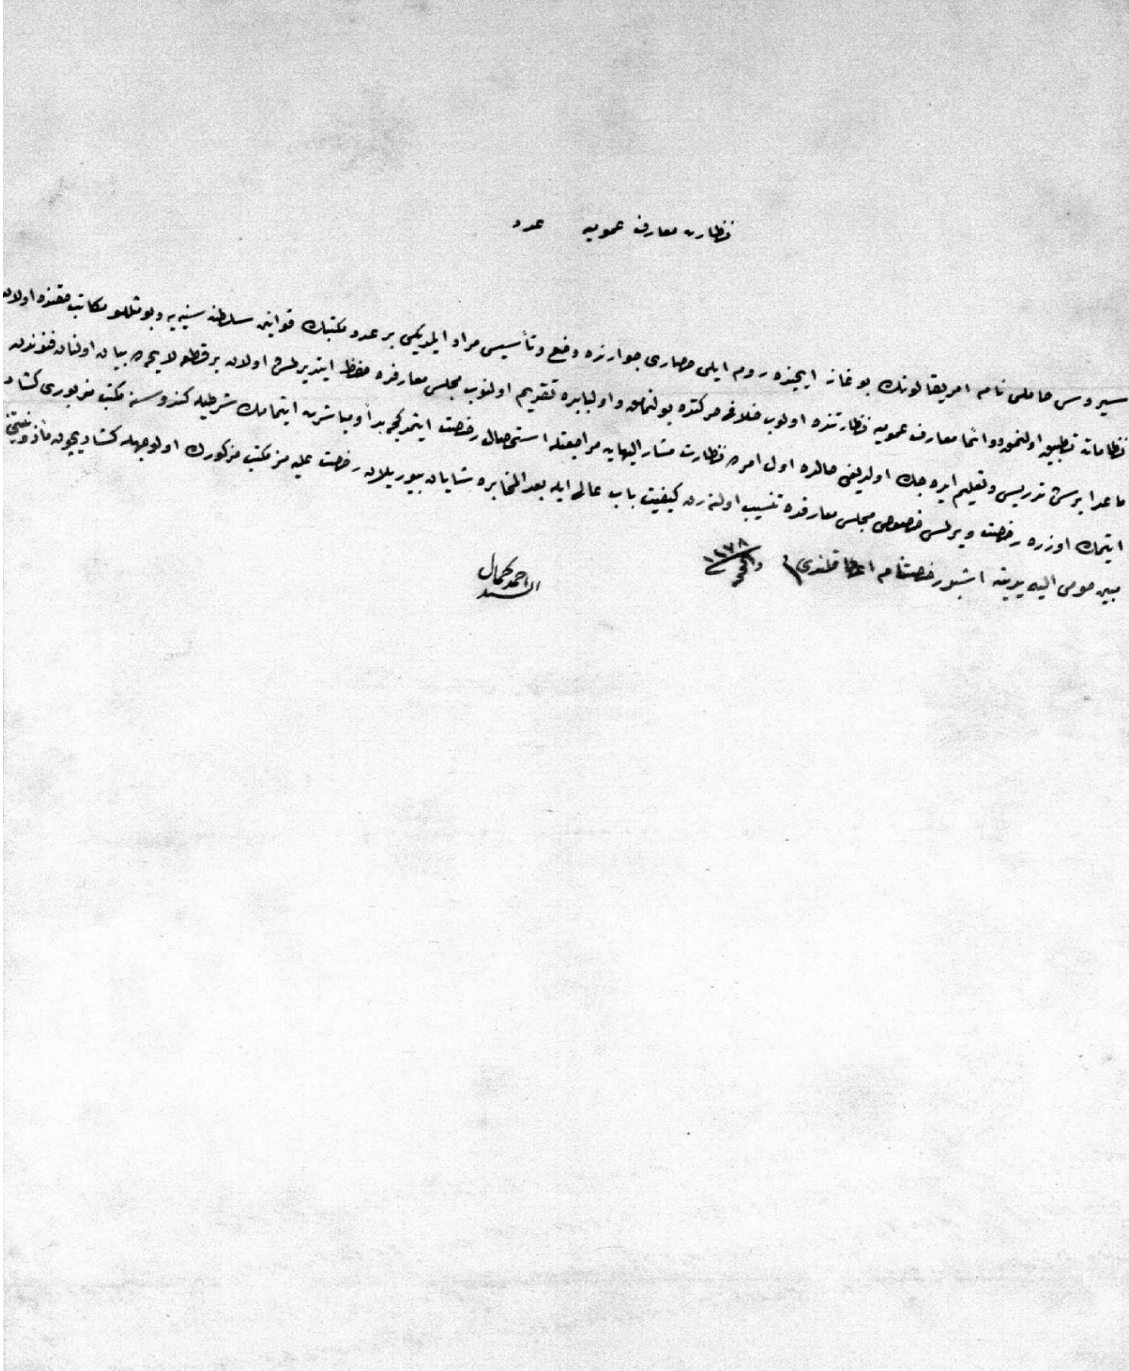 نظارت معارف عمومیه عدد
سیروس هاملن نام امریقالونك بوغاز ایچنده روم ایلی حصاری جوارنده وضع و تأسیسی مراد ایلدیکی بر عدد مکتبك قوانین سلطنت سنیه یه و بو مثللو مکاتب حقنده اولان
نظاماته تطبیق اولنمق و دائما معارف عمومیه نظارتنده اولوب خلافی حرکتده بولنمامق و اولبابده تقدیم اولنوب مجلس معارفده حفظ ایتدیرلمش اولان بر قطعه لایحه ده بیان اولنان فنوندن
ماعدا برشی تدریس و تعلیم ایده جك اولدیغی حالده اول امرده نظارت مشار الیهایه مراجعتله استحصال رخصت ایتمدکجه بدأ و مباشرت ایتمامك شرطیله کندوسنه مکتب مزبوری کشاد
ایتمك اوزره رخصت ویرلمسی خصوصی مجلس معارفده تنسیب اولنه رق کیفیت باب عالی ایله بعد المخابره شایان بیوریلان رخصت علیه مز مکتب مذکورك اولوجهله کشادیچون مأذونیتی
مبین مومی الیه یدینه اشبو رخصتنامه اعطا قلندی فی ١٢٧٨
السید احمد کمال